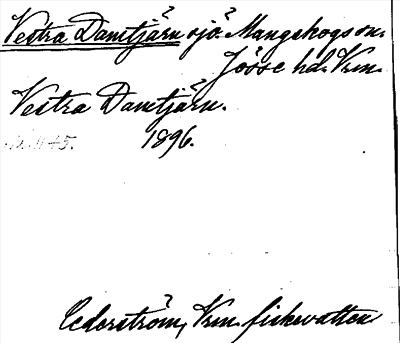 Vestra Damtjärn sjö Mangskogs sn.
Jösse hd. Vrm.
Vestra Damtjärn.
1896.
Cederström, Vrm. fiskevatten